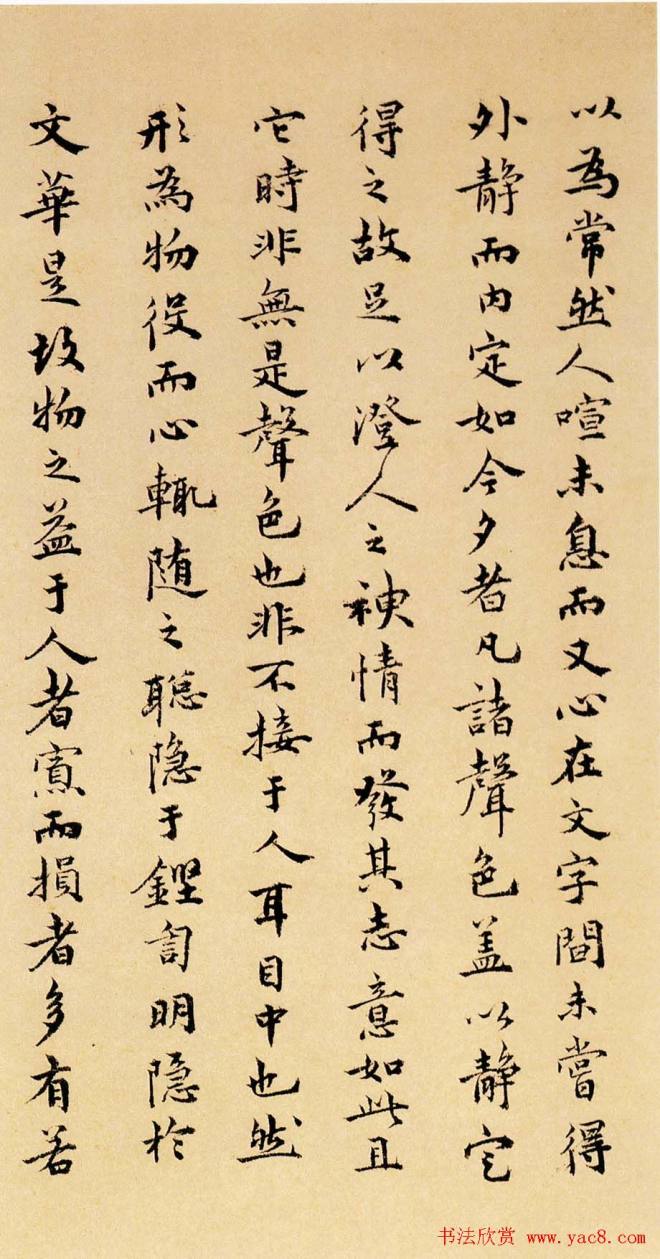 以為常然人喧未息而又心在文字間未嘗得
外靜而内定如今夕者凡諸聲色盖以靜定
得之故足以澄人之神情而發其志意如此且
它時非無是聲色也非不接于人耳目中也然
形為物役而心輒随之聰隐于鏗訇明隐於
文華是故物之益于人者寡而損者多有若
书法欣赏 www.yac8.com